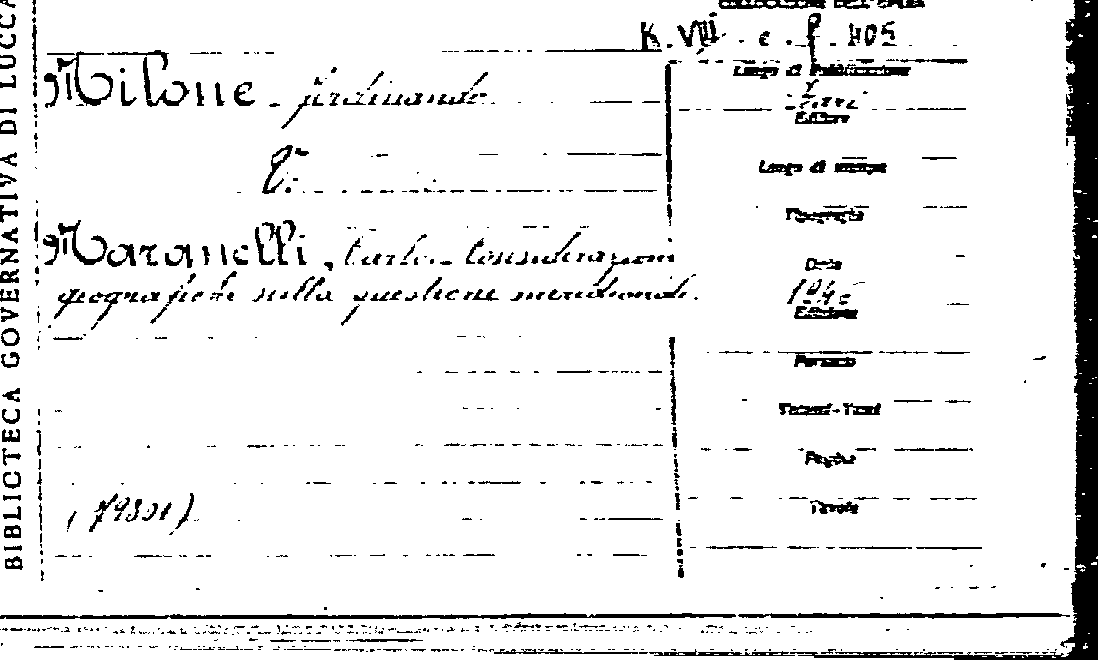 BIBLIOTECA GOVERNATIVA DI LUCCA
COLLOCAZIONE DELL'OPERA
K. VIII. e. f. 405
Milone - Ferdinando
V.
Maranelli, Carlo. Considerazioni
geografiche sulla questione meridionale.
(79301)
Luogo di Pubblicazione
Bari
Editore
Luogo di stampa
Tipografia
Data
1946
Edizione
Formato
Volumi-Tomi
Pagine
Tavole